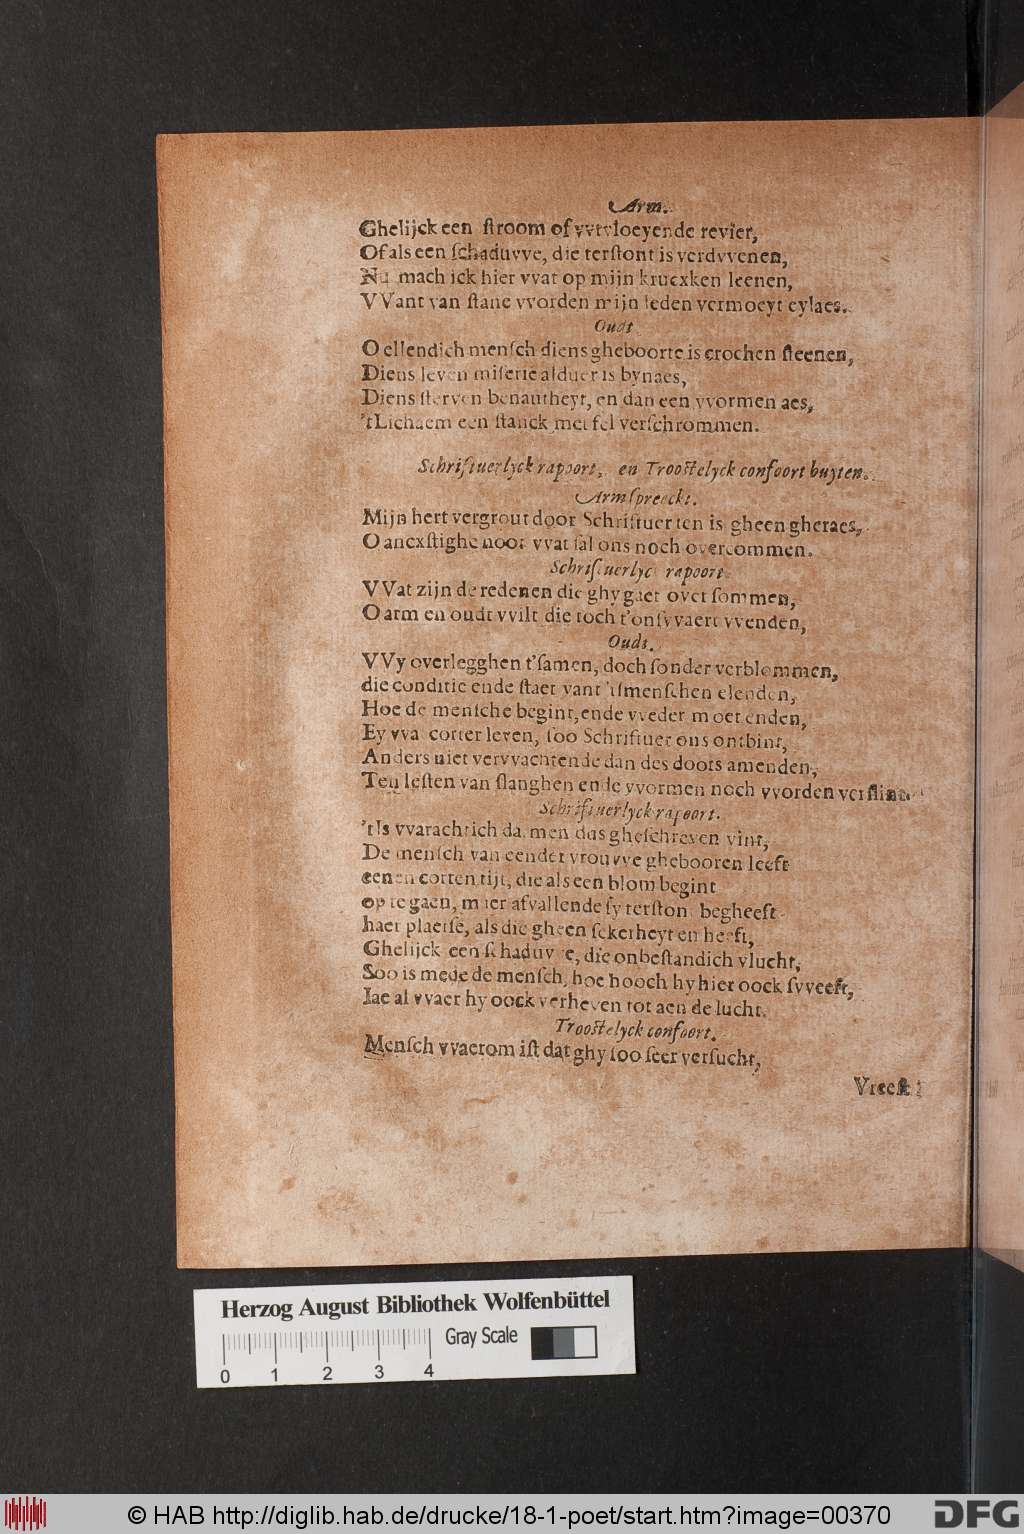 Arm.
Ghelijck een stroom of vvtvloeyende revier,
Of als een schaduvve, die terstont is verdvvenen,
Nu mach ick hier vvat op mijn krucxken leenen,
VVant van stane vvorden mijn leden vermoeyt eylaes.
Oudt
O ellendich mensch diens gheboorte is crochen steenen,
Diens leven miserie alduer is bynaes,
Diens sterven benautheyt, en dan een vvormen aes,
'tLichaem een stanck met fel verschrommen.
Schriftuerlyck rapoort, en Troostelyck confoort buyten.
Arm spreeckt.
Mijn hert vergrout door Schriftuer ten is gheen gheraes,
O ancxstighe noot vvat sal ons noch overcommen.
Schriftuerlyc rapoort.
VVat zijn de redenen die ghy gaet over sommen,
O arm en oudt vvilt die toch t'onsvvaert vvenden,
Oudt.
VVy overlegghen t'samen, doch sonder verblommen,
die conditie ende staet vant 'ismenschen elenden,
Hoe de mensche begint, ende vveder moet enden,
Ey vva corter leven, soo Schriftuer ons ontbint,
Anders niet vervvachtende dan des doots amenden,
Ten lesten van slanghen ende vvormen noch vvorden verslin
Schriftuerlyck rapoort.
'tIs vvarachtich dat men dus gheschreven vint,
De mensch van eender vrouvve ghebooren leeft
eenen corten tijt, die als een blom begint
op te gaen, maer afvallende sy terstont begheeft
haer plaetse, als die gheen sekerheyt en heeft,
Ghelijck een schaduvve, die onbestandich vlucht,
Soo is mede de mensch, hoe hooch hy hier oock svveeft,
Iae al vvaer hy oock verheven tot aen de lucht.
Troostelyck confoort.
Mensch vvaerom ist dat ghy soo seer versucht,
Vreest
Herzog August Bibliothek Wolfenbüttel
Gray Scale
0 1 2 3 4
© HAB http://diglib.hab.de/drucke/18-1-poet/start.htm?image=00370
DFG